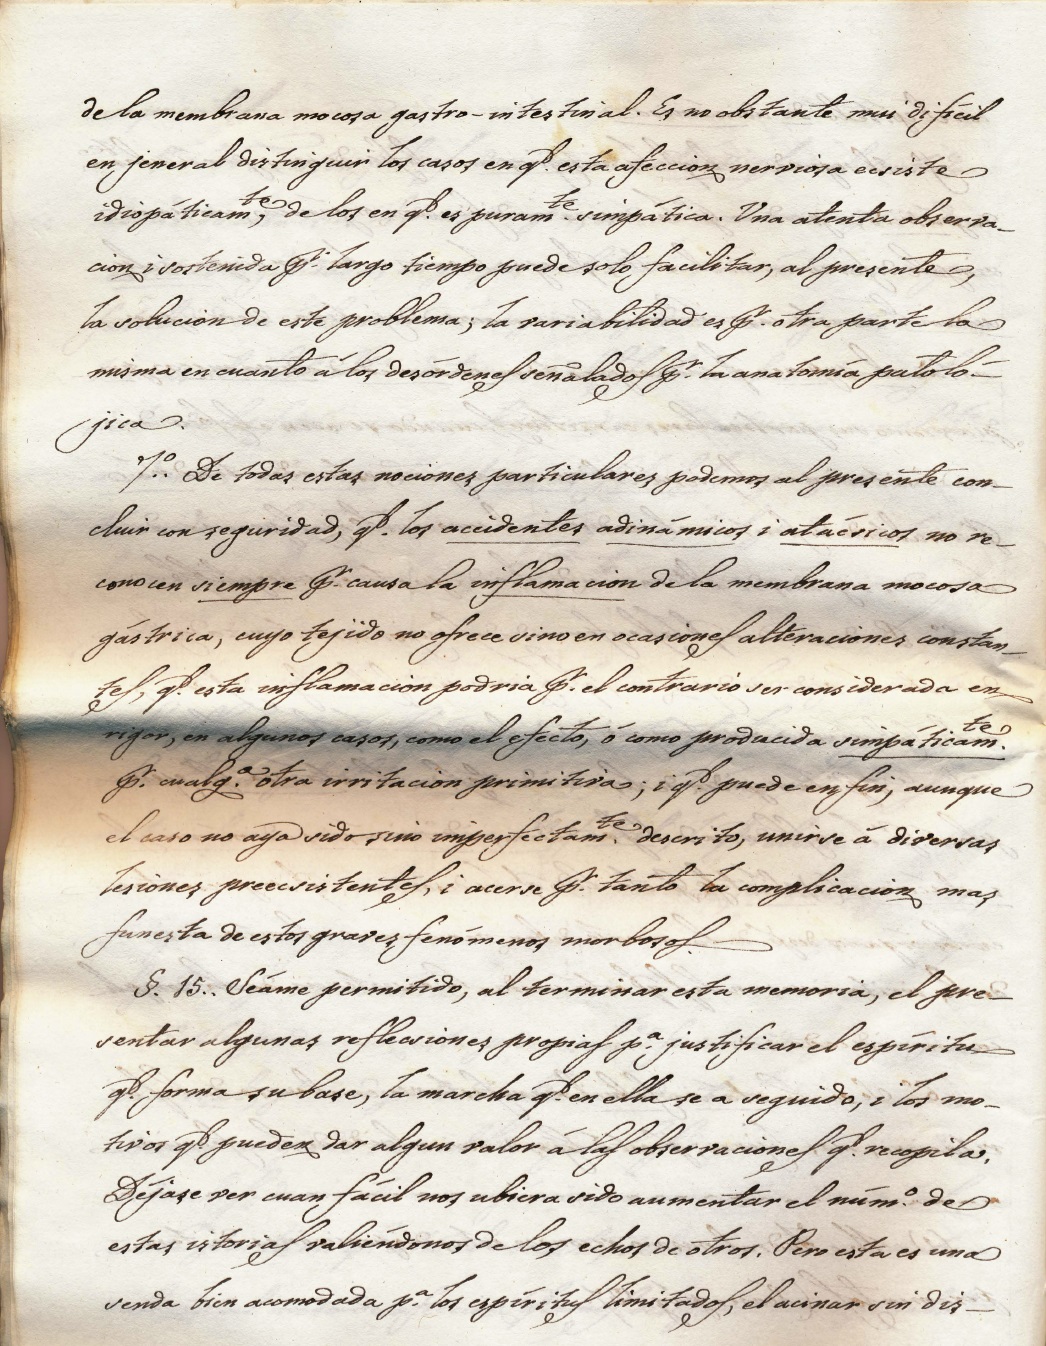 de la membrana mocosa gastro-intestinal. Es no obstante mui difícil
en jeneral distinguir los casos en q.e esta afeccion nerviosa ecsiste
idiopáticam.te, de los en q.e es puram.te simpática. Una atenta observa-
cion i sostenida p.r largo tiempo puede solo facilitar, al presente,
la solucion de este problema; la variabilidad es p.r otra parte la
misma en cuanto á los desórdenes señalados p.r la anatomía patoló-
jica.
7.º. De todas estas nociones particulares podemos al presente con-
cluir con seguridad, q.e los accidentes adinámicos i atácsicos no re-
conocen siempre p.r causa la inflamacion de la membrana mocosa
gástrica, cuyo tejido no ofrece sino en ocasiones alteraciones constan-
tes, q.e esta inflamacion podria p.r el contrario ser considerada en
rigor, en algunos casos, como el efecto, ó como producida simpáticam.te
p.r cualq.a otra irritacion primitiva; i q.e puede en fin, aunque
el caso no aya sido sino imperfectam.te descrito, unirse á diversas
lesiones preecsistentes, i acerse p.r tanto la complicacion mas
funesta de estos graves fenómenos morbosos.
§. 15.. Séame permitido, al terminar esta memoria, el pre-
sentar algunas reflecsiones propias p.a justificar el espíritu
q.e forma su base, la marcha q.e en ella se a seguido, i los mo-
tivos q.e pueden dar algun valor á las observaciones q.e recopila.
Déjase ver cuan fácil nos ubiera sido aumentar el núm.o de
estas istorias valiéndonos de los echos de otros. Pero esta es una
senda bien acomodada p.a los espíritus limitados, el acinar sin dis-